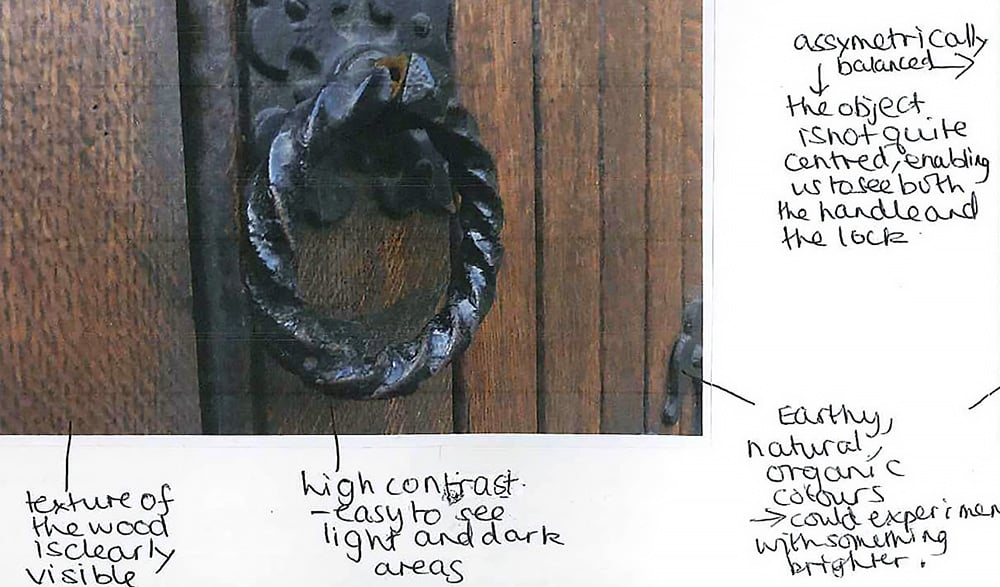 assymetrically
balanced
the object
is not quite
centred, enabling
us to see both
the handle and
the lock.
Earthy,
natural,
organic
colours
→ could experimen
with something
brighter.
high contrast.
- easy to see
light and dark
areas
texture of
the wood
is clearly
visible